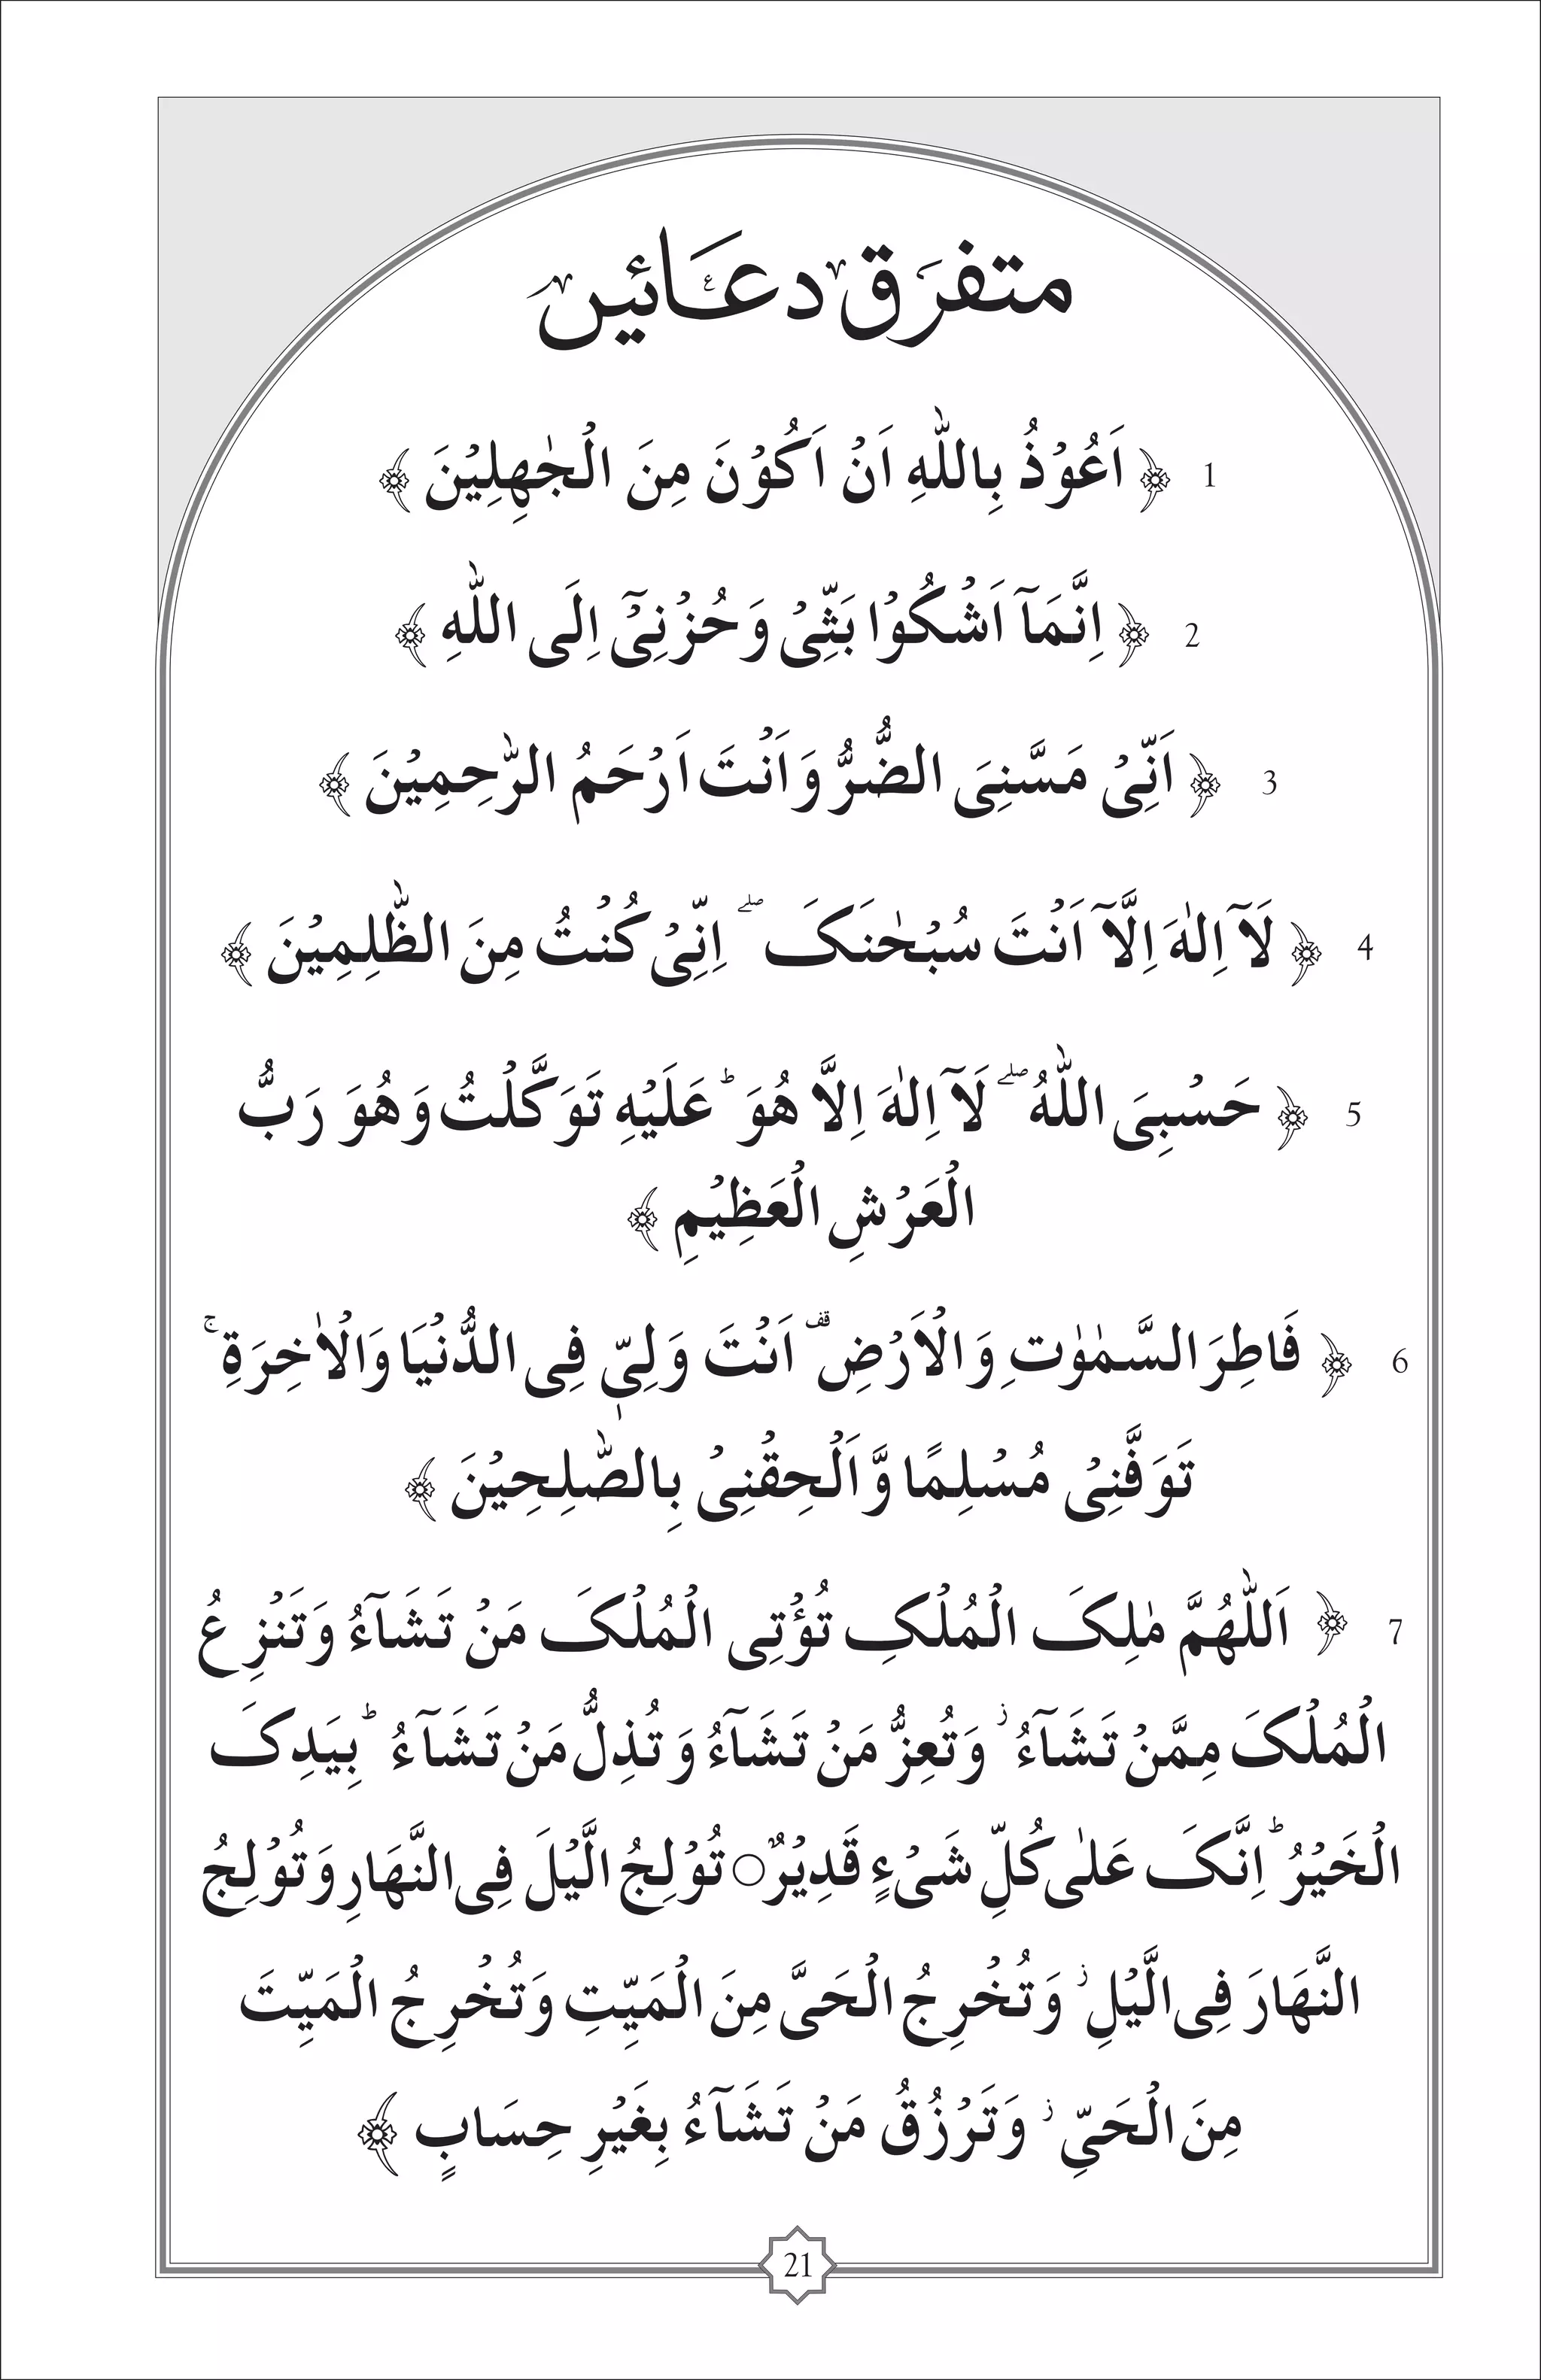 متفرق دعائیں
1 ﴿ اَعُوْذُ بِاللّٰهِ اَنْ اَكُوْنَ مِنَ الْجٰهِلِيْنَ ﴾
2 ﴿ اِنَّمَآ اَشْكُوْا بَثِّىْ وَحُزْنِىْٓ اِلَى اللّٰهِ ﴾
3 ﴿ اَنِّىْ مَسَّنِىَ الضُّرُّ وَاَنْتَ اَرْحَمُ الرّٰحِمِيْنَ ﴾
4 ﴿ لَآ اِلٰهَ اِلَّآ اَنْتَ سُبْحٰنَکَ ۖ اِنِّىْ كُنْتُ مِنَ الظّٰلِمِيْنَ ﴾
5 ﴿ حَسْبِىَ اللّٰهُ ۖ لَآ اِلٰهَ اِلَّا هُوَ ؕ عَلَيْهِ تَوَكَّلْتُ وَهُوَ رَبُّ
الْعَرْشِ الْعَظِيْمِ ﴾
6 ﴿ فَاطِرَ السَّمٰوٰتِ وَالْاَرْضِ قف اَنْتَ وَلِىّٖ فِى الدُّنْيَا وَالْاٰخِرَةِ ۚ
تَوَفَّنِىْ مُسْلِمًا وَّاَلْحِقْنِىْ بِالصّٰلِحِيْنَ ﴾
7 ﴿ اَللّٰهُمَّ مٰلِکَ الْمُلْکِ تُؤْتِى الْمُلْکَ مَنْ تَشَآءُ وَتَنْزِعُ
الْمُلْکَ مِمَّنْ تَشَآءُ ز وَتُعِزُّ مَنْ تَشَآءُ وَتُذِلُّ مَنْ تَشَآءُ ؕ بِيَدِکَ
الْخَيْرُ ؕ اِنَّکَ عَلٰى كُلِّ شَىْءٍ قَدِيْرٌ ○ تُوْلِجُ الَّيْلَ فِى النَّهَارِ وَتُوْلِجُ
النَّهَارَ فِى الَّيْلِ ز وَتُخْرِجُ الْحَىَّ مِنَ الْمَيِّتِ وَتُخْرِجُ الْمَيِّتَ
مِنَ الْحَىِّ ز وَتَرْزُقُ مَنْ تَشَآءُ بِغَيْرِ حِسَابٍ ﴾
21